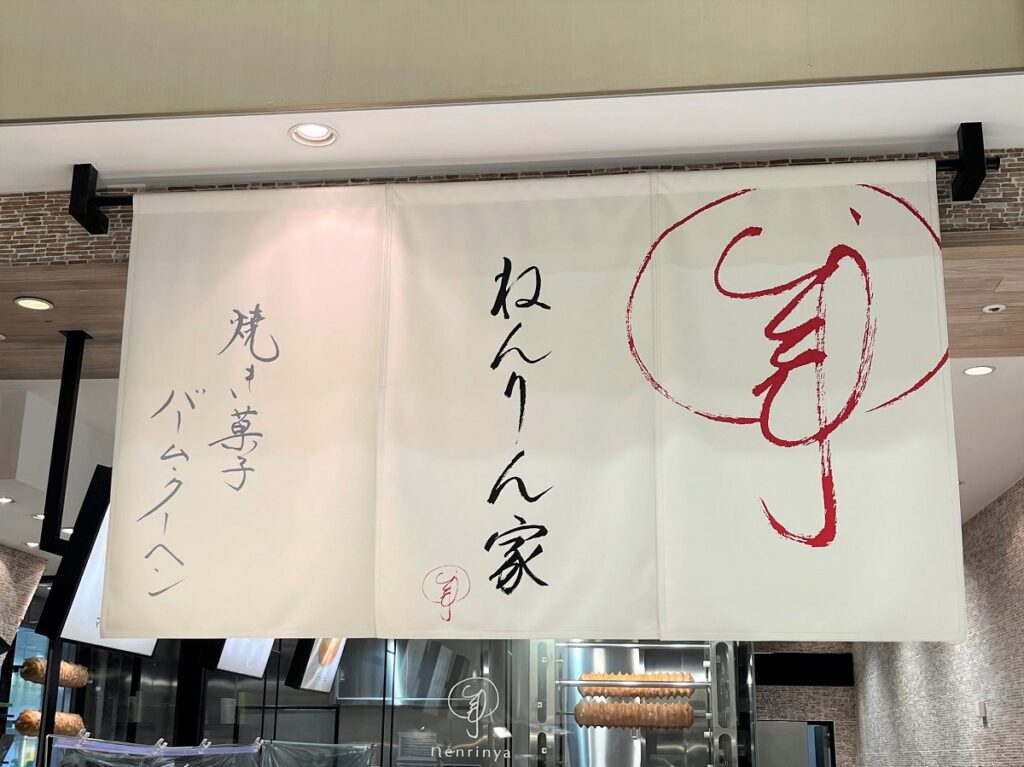 ねんりん家
焼き菓子
バーム・クーヘン
nenrinya